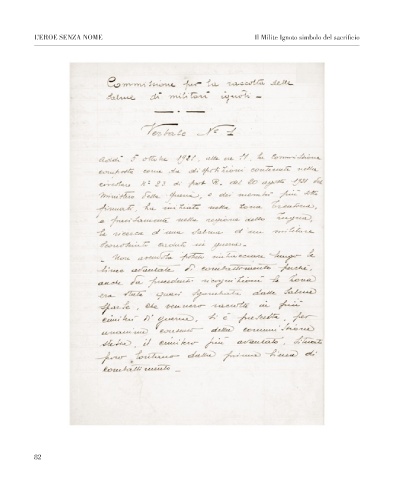 L'EROE SENZA NOME
Il Milite Ignoto simbolo del sacrificio
Commissione per la raccolta delle
salme di militari ignoti -
Verbale N° 1
Addì 5 ottobre 1921, alle ore 11, la Commissione
composta come da disposizioni contenute nella
circolare n° 23 di prot. R. del 20 agosto 1921 del
Ministero della guerra, e dei membri più sotto
firmati, ha iniziato nella zona
e precisamente nella regione dello Zugna,
la ricerca d'una salma d'un militare
sconosciuto caduto in guerra.
- Non avendo potuto rintracciare lungo la
linea avanzata di combattimento perché,
anche da precedenti ricognizioni la zona
era stata quasi sgomberata dalle salme
sparse, che vennero raccolte in più
cimiteri di guerra, si è prescelto, per
unanime consenso della commissione
stessa, il cimitero più avanzato, situato
poco lontano dalla prima linea di
combattimento -
82